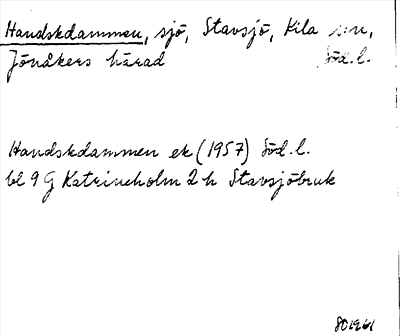 Handskdammen, sjö, Stavsjö, Kila s:n,
Jönåkers härad Söd.l.
Handskdammen ek (1957) Söd.l.
bl 9 G Katrineholm 2 h Stavsjöbruk
801261